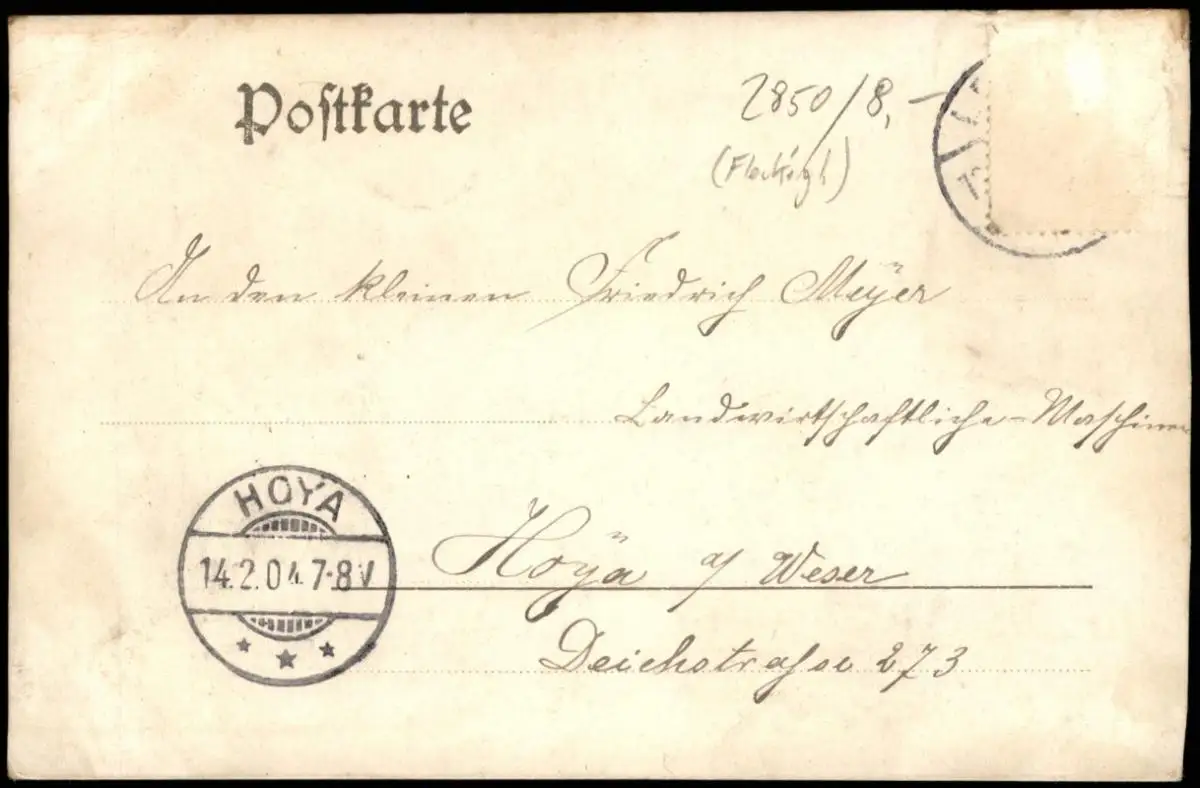 Postkarte
2850/8,-
An den kleinen Friedrich Meÿer
Landwirtschaftliche-Maschinen
HOYA
14.2.04. 7-8 V
Hoÿa a/ Weser
Deichstrasse 273